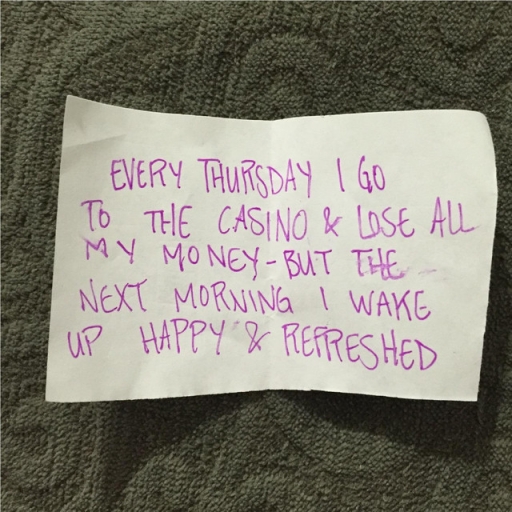 EVERY THURSDAY I GO
TO THE CASINO & LOSE ALL
MY MONEY-BUT THE
NEXT MORNING I WAKE
UP HAPPY & REFRESHED